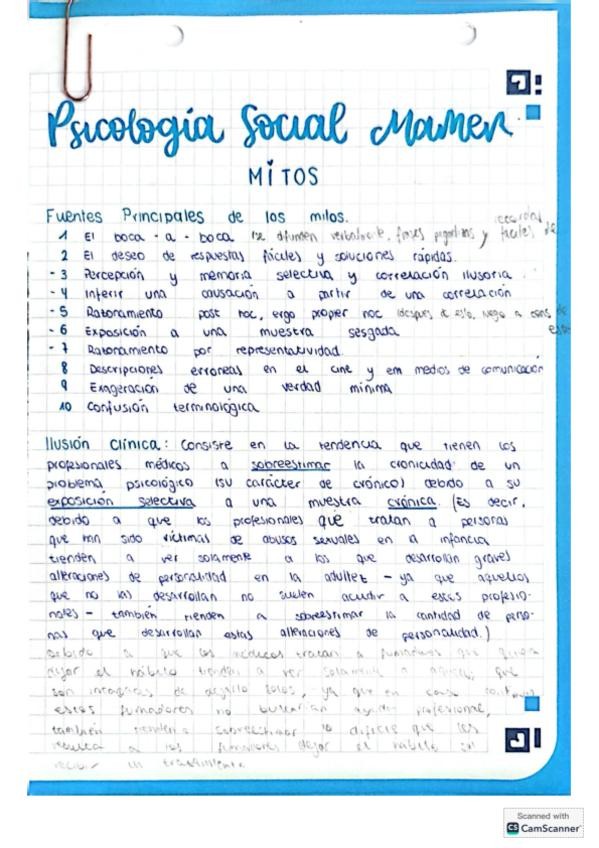 Psicología Social Mamen
MITOS
Fuentes Principales de los mitos.
1 El boca-a-boca (se difunden verbalmente, frases pegadizas y fáciles de recordar
2 El deseo de respuestas fáciles y soluciones rápidas.
- 3 Percepción y memoria selectiva y correlación ilusoria.
- 4 Inferir una causación a partir de una correlación
- 5 Razonamiento post hoc, ergo proper hoc (después de esto, luego a cons de esto
- 6 Exposición a una muestra sesgada
- 7 Razonamiento por representatividad
8 Descripciones erroneas en el cine y em medios de comunicación
9 Exageración de una verdad mínima
10 Confusión terminológica
Ilusión Clínica: Consiste en la tendencia que tienen los
profesionales médicos a sobreestimar la cronicidad de un
problema psicológico (su carácter de crónico) debido a su
exposición selectiva a una muestra crónica. (Es decir,
debido a que los profesionales que tratan a personas
que han sido víctimas de abusos sexuales en la infancia
tienden a ver solamente a los que desarrollan graves
alteraciones de personalidad en la adultez - ya que aquellos
que no las desarrollan no suelen acudir a estos profesio-
nales - también tienden a sobreestimar la cantidad de perso-
nas que desarrollan estas alteraciones de personalidad.)
Debido a que los médicos tratan a fumadores que quieren
dejar el hábito tienden a ver solamente a aquellos que
son incapaces de dejarlo solos, ya que en caso contrario
estos fumadores no buscarían ayuda profesional,
también tienden a sobreestimar lo difícil que les
resulta a los fumadores dejar el hábito sin
recibir un tratamiento
Scanned with
CS CamScanner